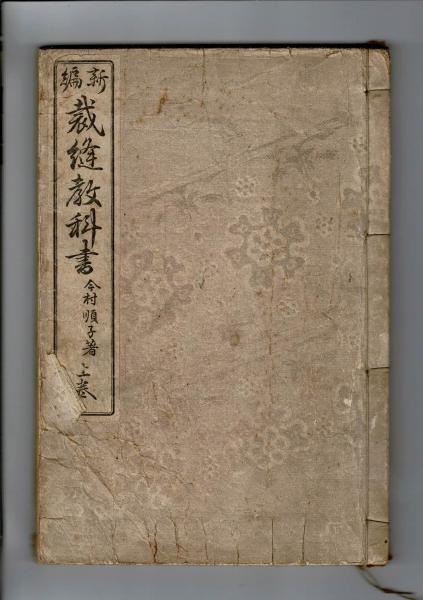 新編
裁縫教科書
今村順子著
上巻